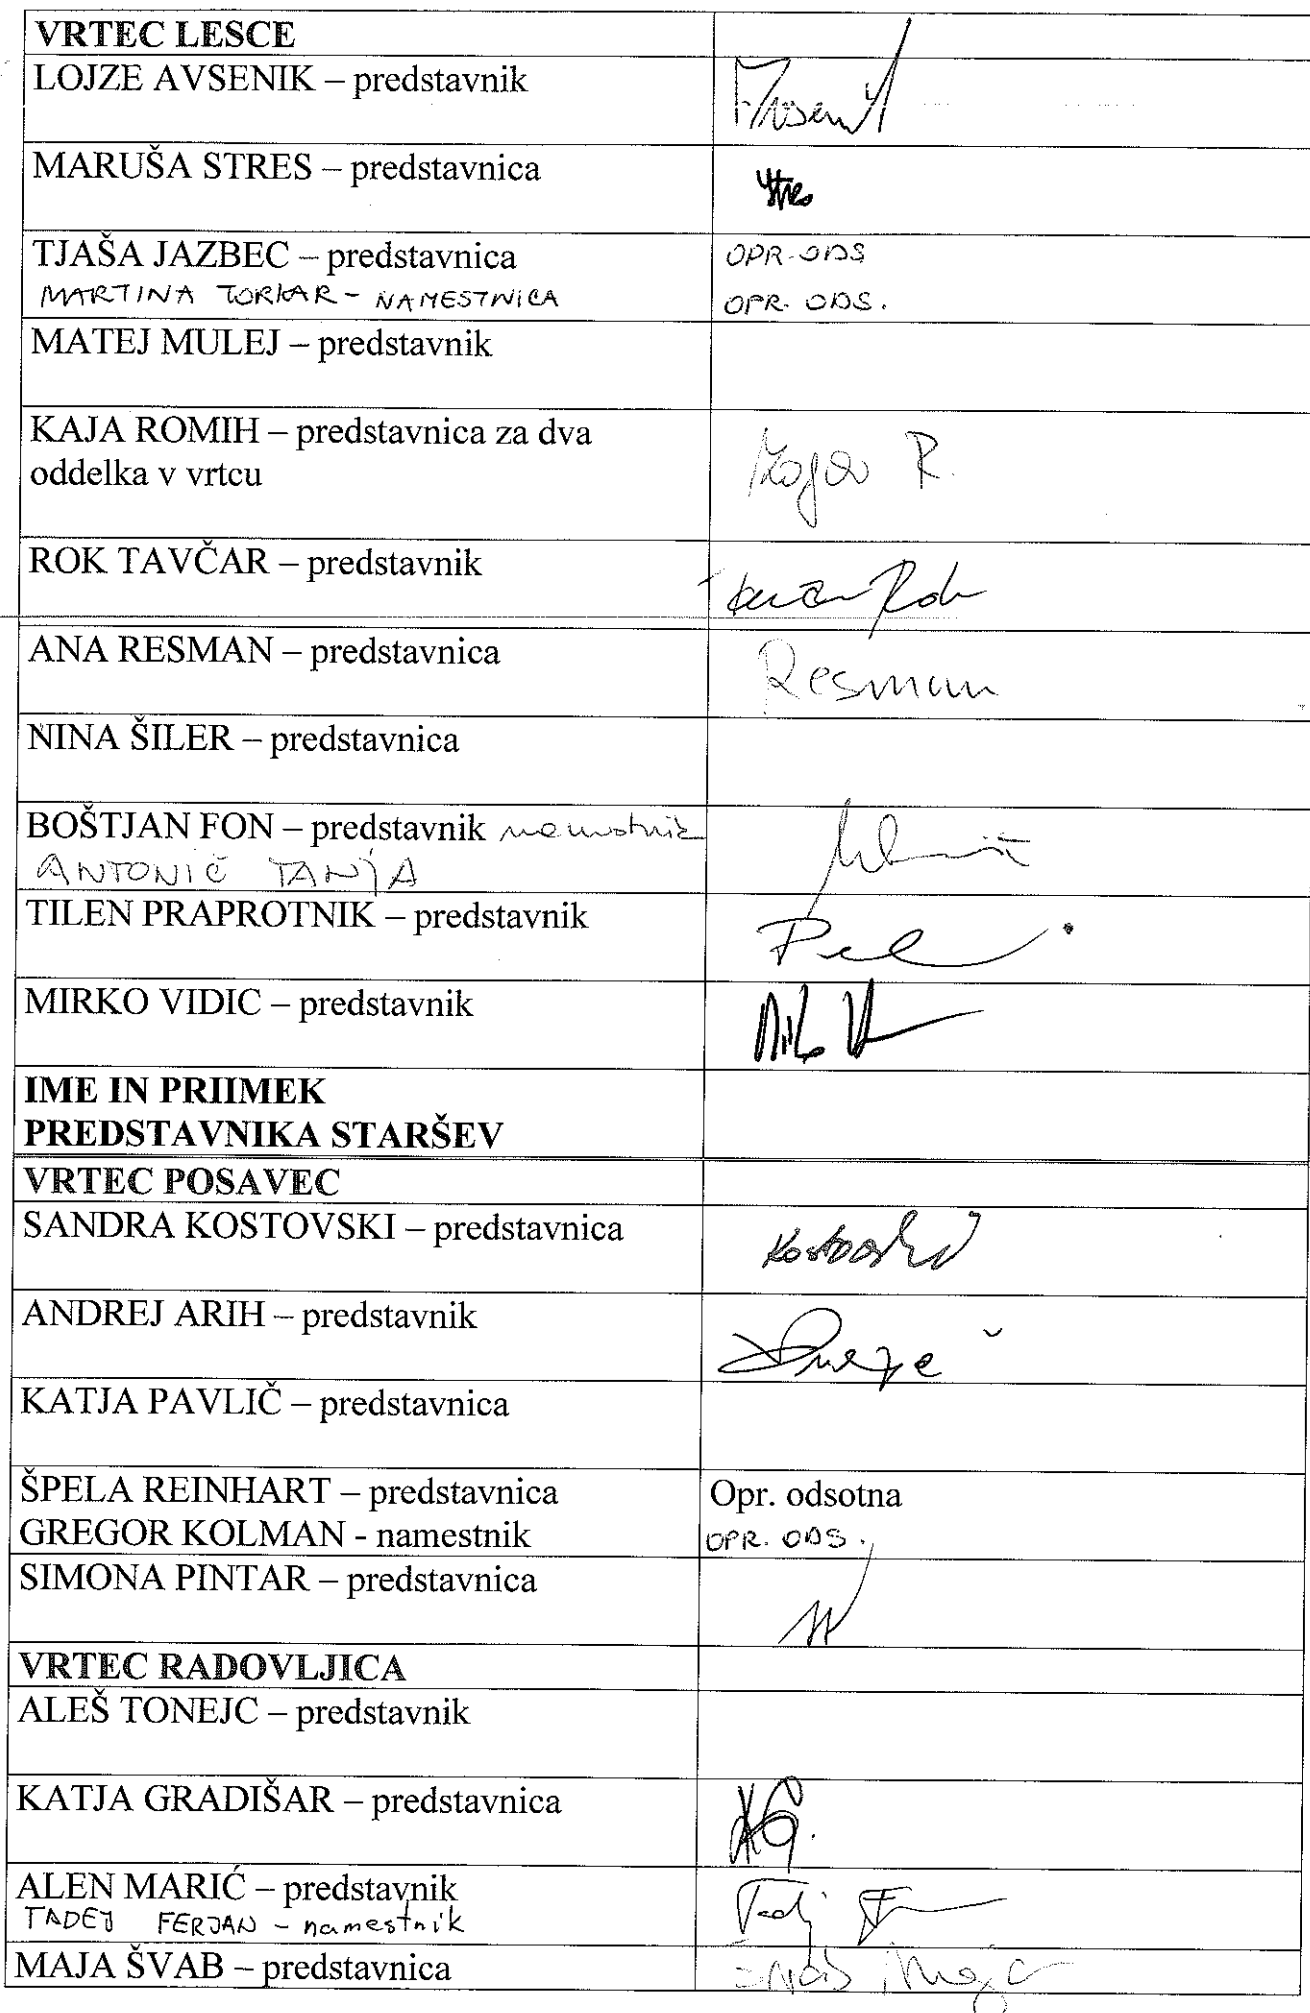 VRTEC LESCE
LOJZE AVSENIK – predstavnik
Avsenik
MARUŠA STRES – predstavnica
Stres
TJAŠA JAZBEC – predstavnica OPR. ODS
MARTINA TORKAR - NAMESTNICA OPR. ODS.
MATEJ MULEJ – predstavnik
KAJA ROMIH – predstavnica za dva
oddelka v vrtcu
R.
ROK TAVČAR – predstavnik
Rok
ANA RESMAN – predstavnica
Resman
NINA ŠILER – predstavnica
BOŠTJAN FON – predstavnik namestnik
ANTONIČ TANJA
TILEN PRAPROTNIK – predstavnik
MIRKO VIDIC – predstavnik
IME IN PRIIMEK
PREDSTAVNIKA STARŠEV
VRTEC POSAVEC
SANDRA KOSTOVSKI – predstavnica
Kostovski
ANDREJ ARIH – predstavnik
KATJA PAVLIČ – predstavnica
ŠPELA REINHART – predstavnica Opr. odsotna
GREGOR KOLMAN - namestnik OPR. ODS.
SIMONA PINTAR – predstavnica
VRTEC RADOVLJICA
ALEŠ TONEJC – predstavnik
KATJA GRADIŠAR – predstavnica
KG.
ALEN MARIĆ – predstavnik
TADEJ FERJAN - namestnik
Tadej F
MAJA ŠVAB – predstavnica
Švab Maja